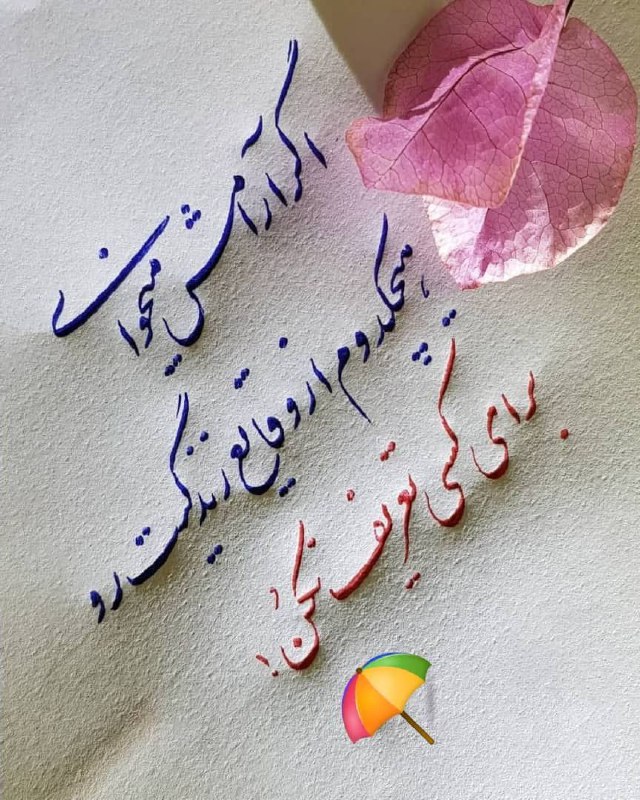 اگر آرامش میخوای
هیچکدوم از وقایع زندگیت رو
برای کسی تعریف نکن!